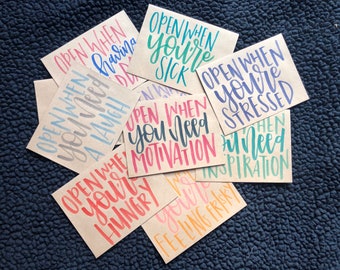 OPEN WHEN
having
OPEN WHEN
you're
SICK
OPEN WHEN
you're
STRESSED
OPEN WHEN
you need
A LAUGH
OPEN WHEN
you need
MOTIVATION
WHEN
need
INSPIRATION
OPEN WHEN
you're
HUNGRY
FEELING